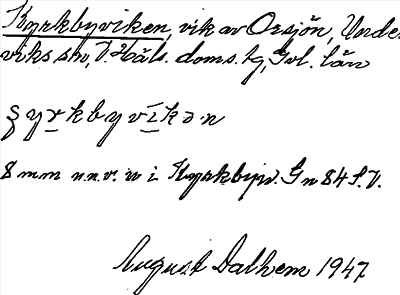 Kyrkbyviken, vik av Orsjön, Unders-
viks sn, V. Häls. doms. tg, Gvl. län
ʂyrkbyvikən
8 mm n.n.v. n i Kyrkbyv. G n 84 S.V.
August Dalhem 1947